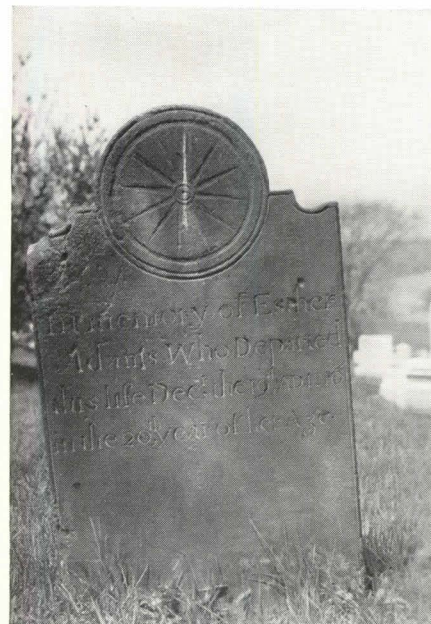 In memory of Esther
Adams Who Departed
this life Decr the
in the 20th year of her Age